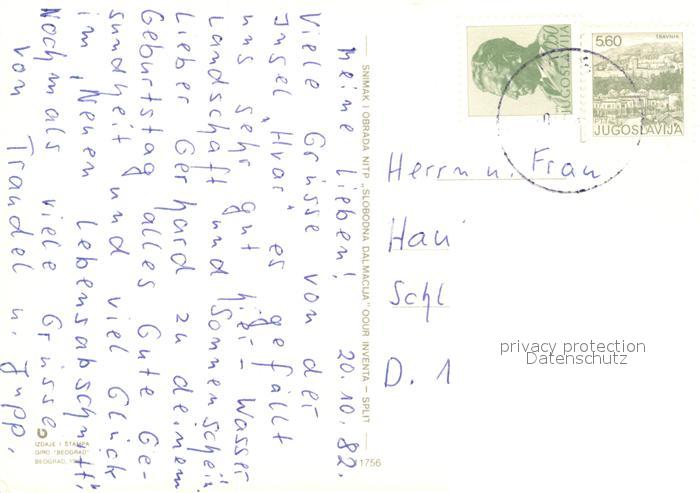 meine Lieben! 20.10.82.
Viele Grüsse von der
Insel "Hvar" es gefällt
uns sehr gut hier - Wasser
Landschaft und Sonnenschein.
Lieber Gerhard zu deinem
Geburtstag alles Gute Ge-
sundheit und viel Glück
im "Neuen Lebensabschnitt"
Nochmals viele Grüsse
von Traudel u. Jupp.
SNIMAK I OBRADA NITP „SLOBODNA DALMACIJA" OOUR INVENTA – SPLIT
IZDAJE I ŠTAMPA
GIRO "BEOGRAD"
BEOGRAD,
1756
JUGOSLAVIJA
5.60
TRAVNIK
PTT
JUGOSLAVIJA
Herrn u. Frau
Hau
Schl
D. 1
privacy protection
Datenschutz